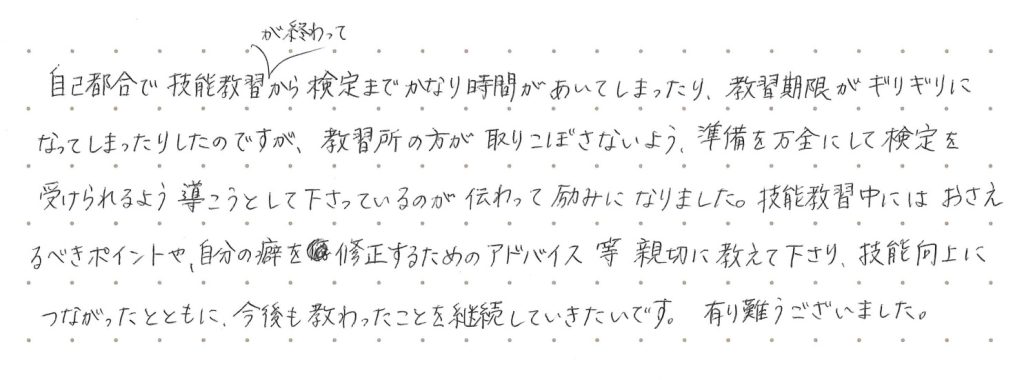 が終わって
自己都合で技能教習から検定までかなり時間があいてしまったり、教習期限がギリギリに
なってしまったりしたのですが、教習所の方が取りこぼさないよう、準備を万全にして検定を
受けられるよう導こうとして下さっているのが伝わって励みになりました。技能教習中にはおさえ
るべきポイントや、自分の癖を修正するためのアドバイス等親切に教えて下さり、技能向上に
つながったとともに、今後も教わったことを継続していきたいです。有り難うございました。